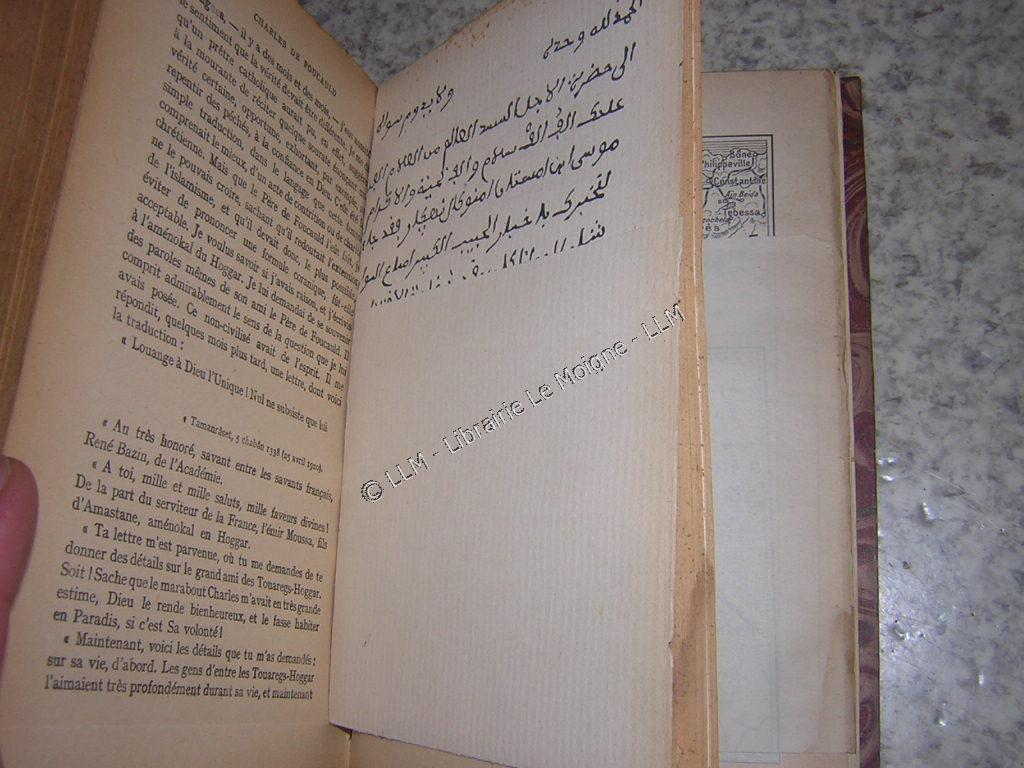 CHARLES DE FOUCAULD
— il y a des mois et des mois, — j'eus
le sentiment que la vérité devait être celle-ci
qu'un prêtre catholique aurait pu, en effet, suggérer
à la mourante de réciter quelque sourate énonçant une
vérité certaine, opportune, exhortant, par exemple, au
repentir des péchés, à la confiance en Dieu. C'eût été la
simple traduction, dans le langage que cette femme
comprenait le mieux, d'un acte de contrition ou de charité
chrétienne. Mais que le Père de Foucauld l'eût fait, je
ne le pouvais croire, sachant qu'il redoutait l'extension
de l'islamisme, et qu'il devait donc, le plus possible,
éviter de prononcer une formule coranique, fût-elle
acceptable. Je voulus savoir si j'avais raison, et j'écrivis
à l'aménokal du Hoggar. Je lui demandai de se souvenir
des paroles mêmes de son ami le Père de Foucauld. Il
comprit admirablement le sens de la question que je lui
avais posée. Ce non-civilisé avait de l'esprit. Il me
répondit, quelques mois plus tard, une lettre, dont voici
la traduction :
« Louange à Dieu l'Unique ! Nul ne subsiste que lui
« Tamanrâset, 5 chabân 1338 (25 avril 1920).
« Au très honoré, savant entre les savants français,
René Bazin, de l'Académie.
« A toi, mille et mille saluts, mille faveurs divines !
De la part du serviteur de la France, l'émir Moussa, fils
d'Amastane, aménokal en Hoggar.
« Ta lettre m'est parvenue, où tu me demandes de te
donner des détails sur le grand ami des Touaregs-Hoggar.
Soit ! Sache que le marabout Charles m'avait en très grande
estime, Dieu le rende bienheureux, et le fasse habiter
en Paradis, si c'est Sa volonté !
« Maintenant, voici les détails que tu m'as demandés :
sur sa vie, d'abord. Les gens d'entre les Touaregs-Hoggar
l'aimaient très profondément durant sa vie, et maintenant
الحمد لله وحده
ولا يدوم سواه
الى حضرة الاجل السيد العالم من
عليك الف الف سلام والف
موسى ابن امستان امنوكال
تخبرك باخبار الحبيب الكبير
Bône
Philippeville
Constantine
Aïn Beïda
Tebessa
© LLM - Librairie Le Moigne - LLM